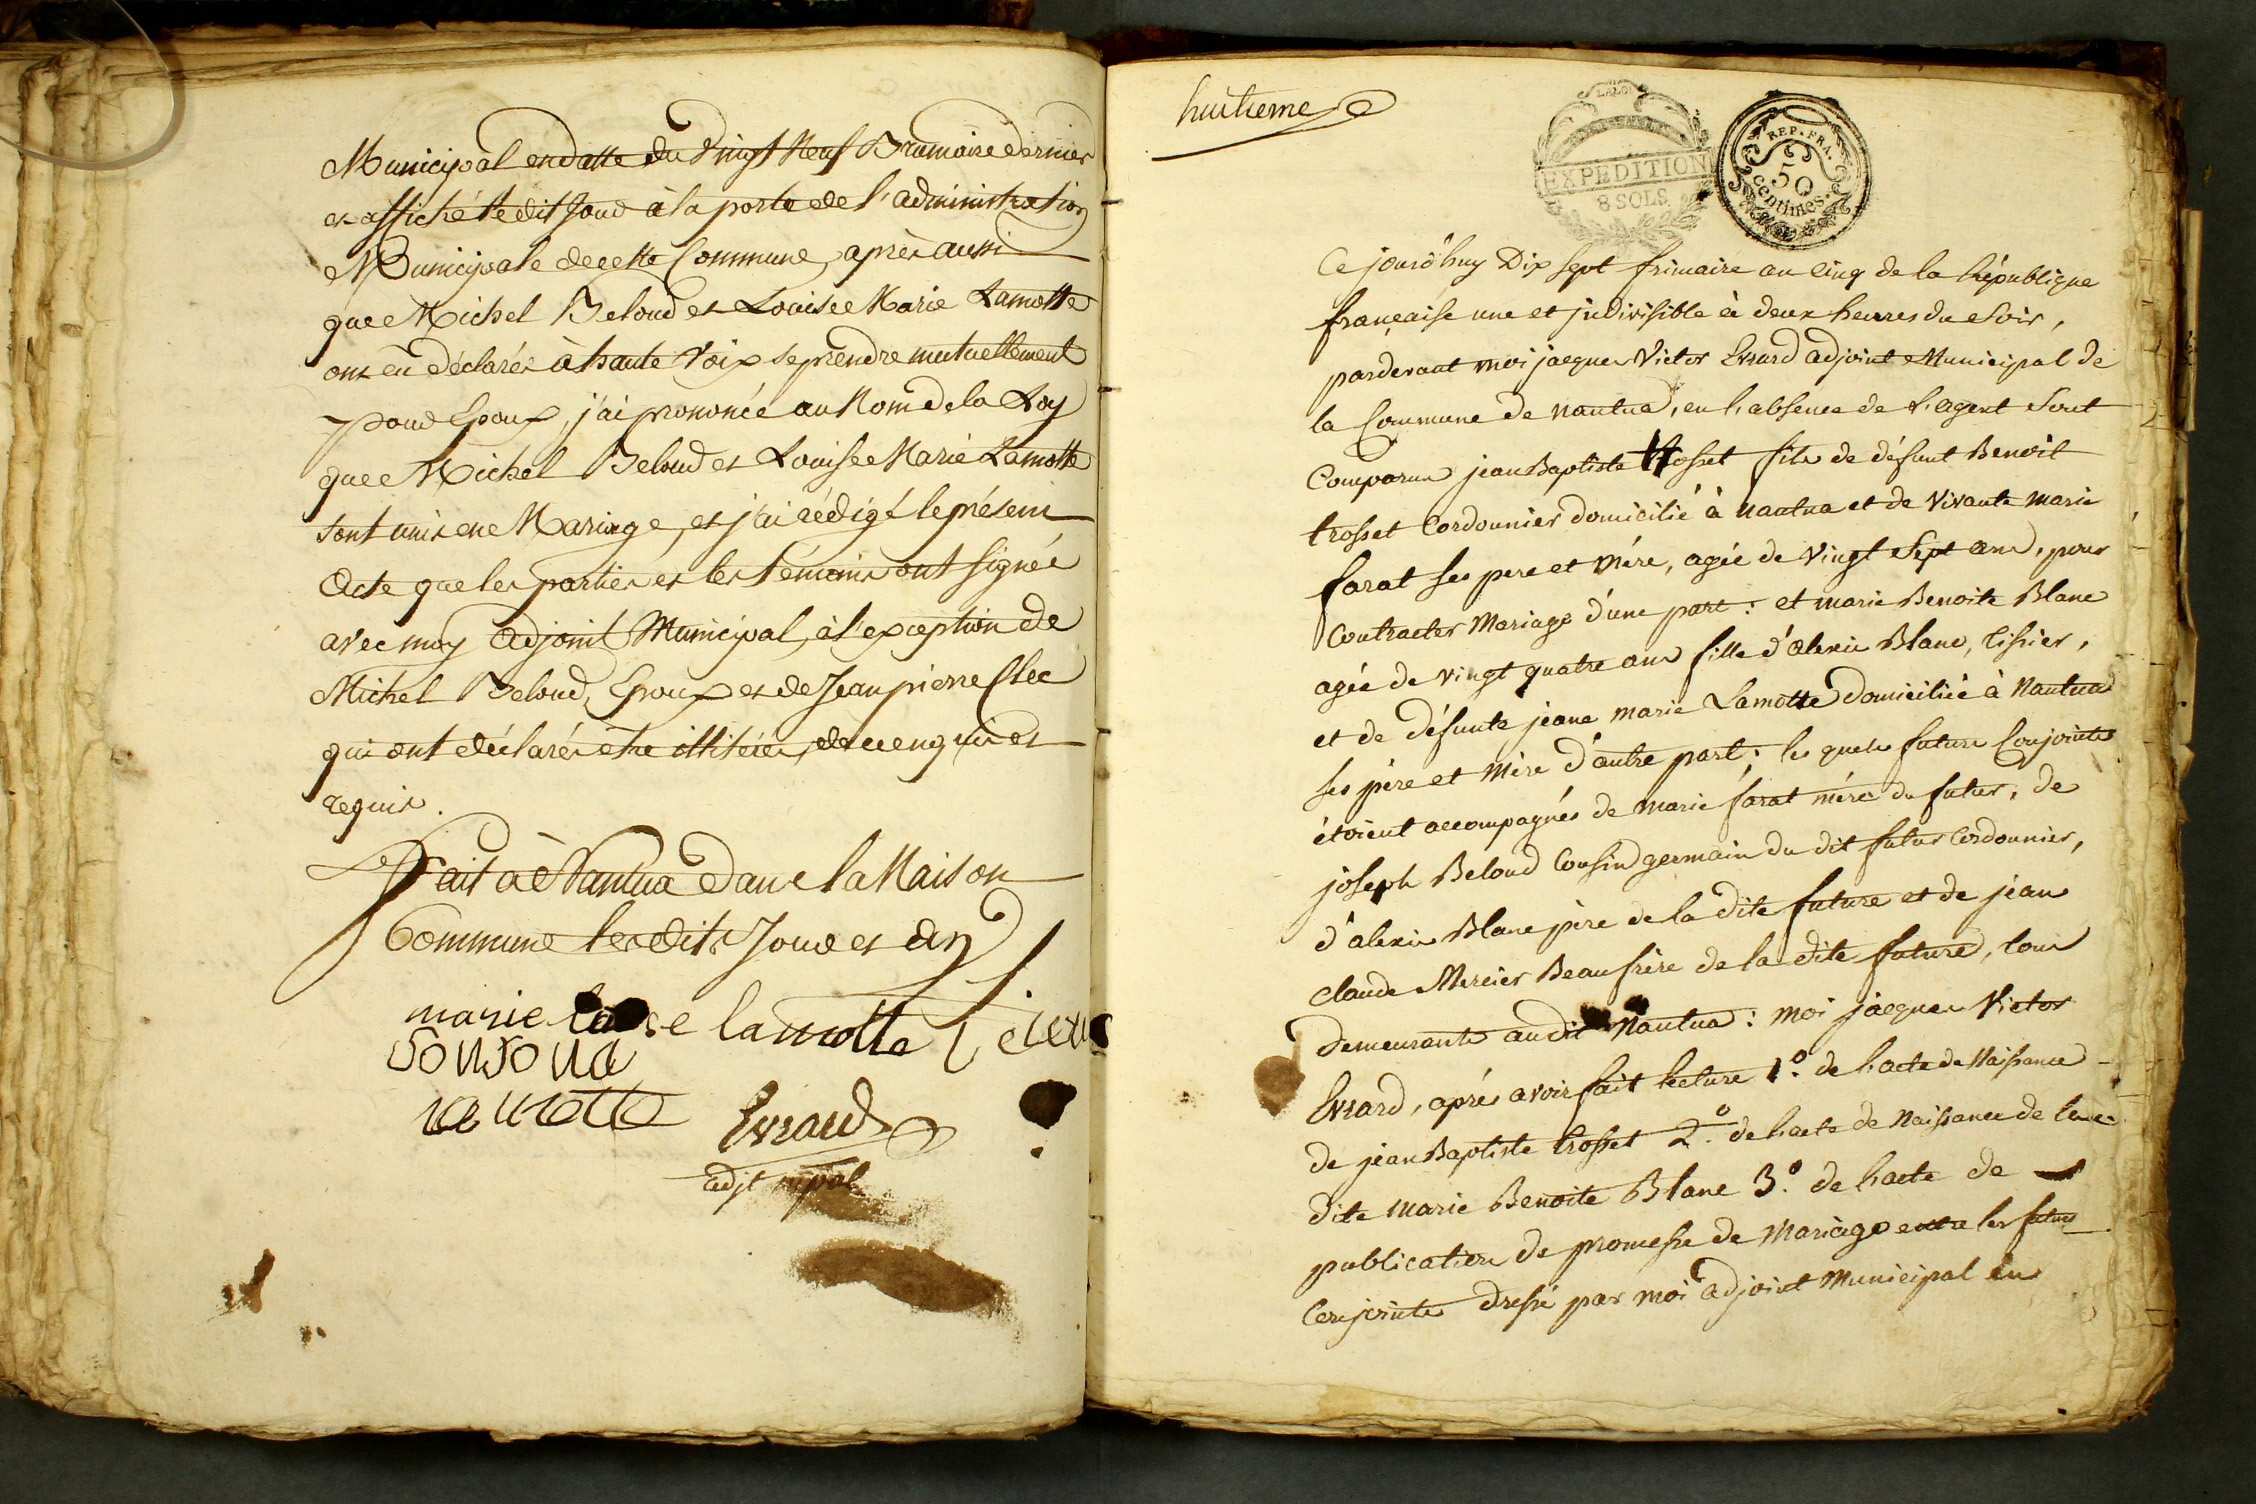 Municipal en datte du Vingt Neuf Brumaire dernier
et affiché ledit Jour à la porte de l'administration
Municipale de cette Commune, après aussi
que Michel Beloud et Louise Marie Lamotte
ont eû déclarés à haute Voix se prendre mutuellement
pour Epoux, j'ai prononcé au Nom de la Loy
que Michel Beloud et Louise Marie Lamotte
sont unis en Mariage, et j'ai rédigé le présent
Acte que les parties et les témoins ont signée
avec moy Adjoint Municipal, à l'exception de
Michel Beloud, Epoux et de Jean pierre Clec
qui ont déclarés être illitérés, de ce enquis et
requis.
Fait à Nantua dans la Maison
Commune lesdits Jour et an
marie lamotte
lamotte
Evrard
adjt mpal
huitieme
LA LOI
EXPEDITION
8 SOLS.
REP. FRA.
50
centimes.
Ce jourd'huy Dix sept frimaire an cinq de la République
française une et jndivisible à deux heures du Soir,
pardevant moi jacques Victor Evrard adjoint Municipal de
la Commune de nantua, en l'absence de l'agent Sont
Comparus jean Baptiste trosset fils de défunt Benoit
trosset Cordonnier domicilié à nantua et de Vivante marie
farat ses pere et mére, agée de Vingt Sept ans, pour
Contracter Mariage d'une part: et marie Benoite Blanc
agée de vingt quatre ans fille d'alexis Blanc, tissier,
et de défunte jeane marie Lamotte domiciliée à Nantua
ses père et mère d'autre part; les quels futurs Conjoints
étoient accompagnés de marie farat mére du futur, de
joseph Beloud Cousin germain du dit futur Cordonnier,
d'alexis Blanc père de la dite future et de jean
claude Mercier Beaufrère de la dite future, tous
demeurants audit Nantua: moi jacques Victor
Evrard, après avoir fait lecture 1.º de l'acte de Naissance
de jean Baptiste trosset 2.º de l'acte de Naissance de la
dite marie Benoite Blanc 3.º de l'acte de
publication de promesse de Mariage entre les futurs
Conjoints dressé par moi adjoint Municipal en